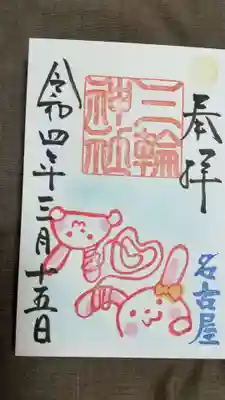 奉拝
名古屋
三輪
神社
令和四年三月十五日